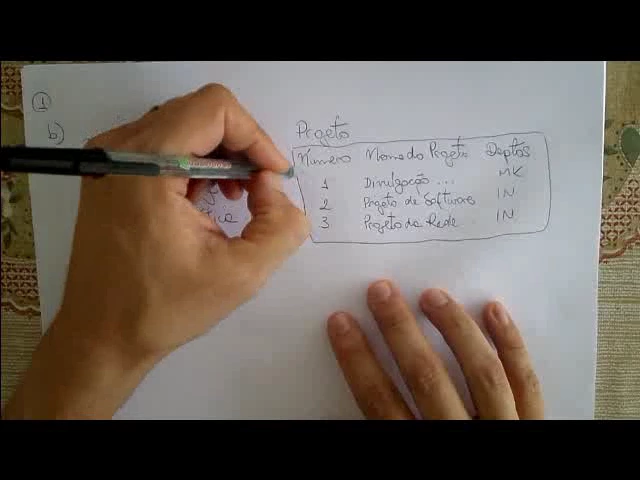 1
b)
Projeto
Número Nome do Projeto Deptos
1 Divulgação ... MK
2 Projeto de Software IN
3 Projeto da Rede IN